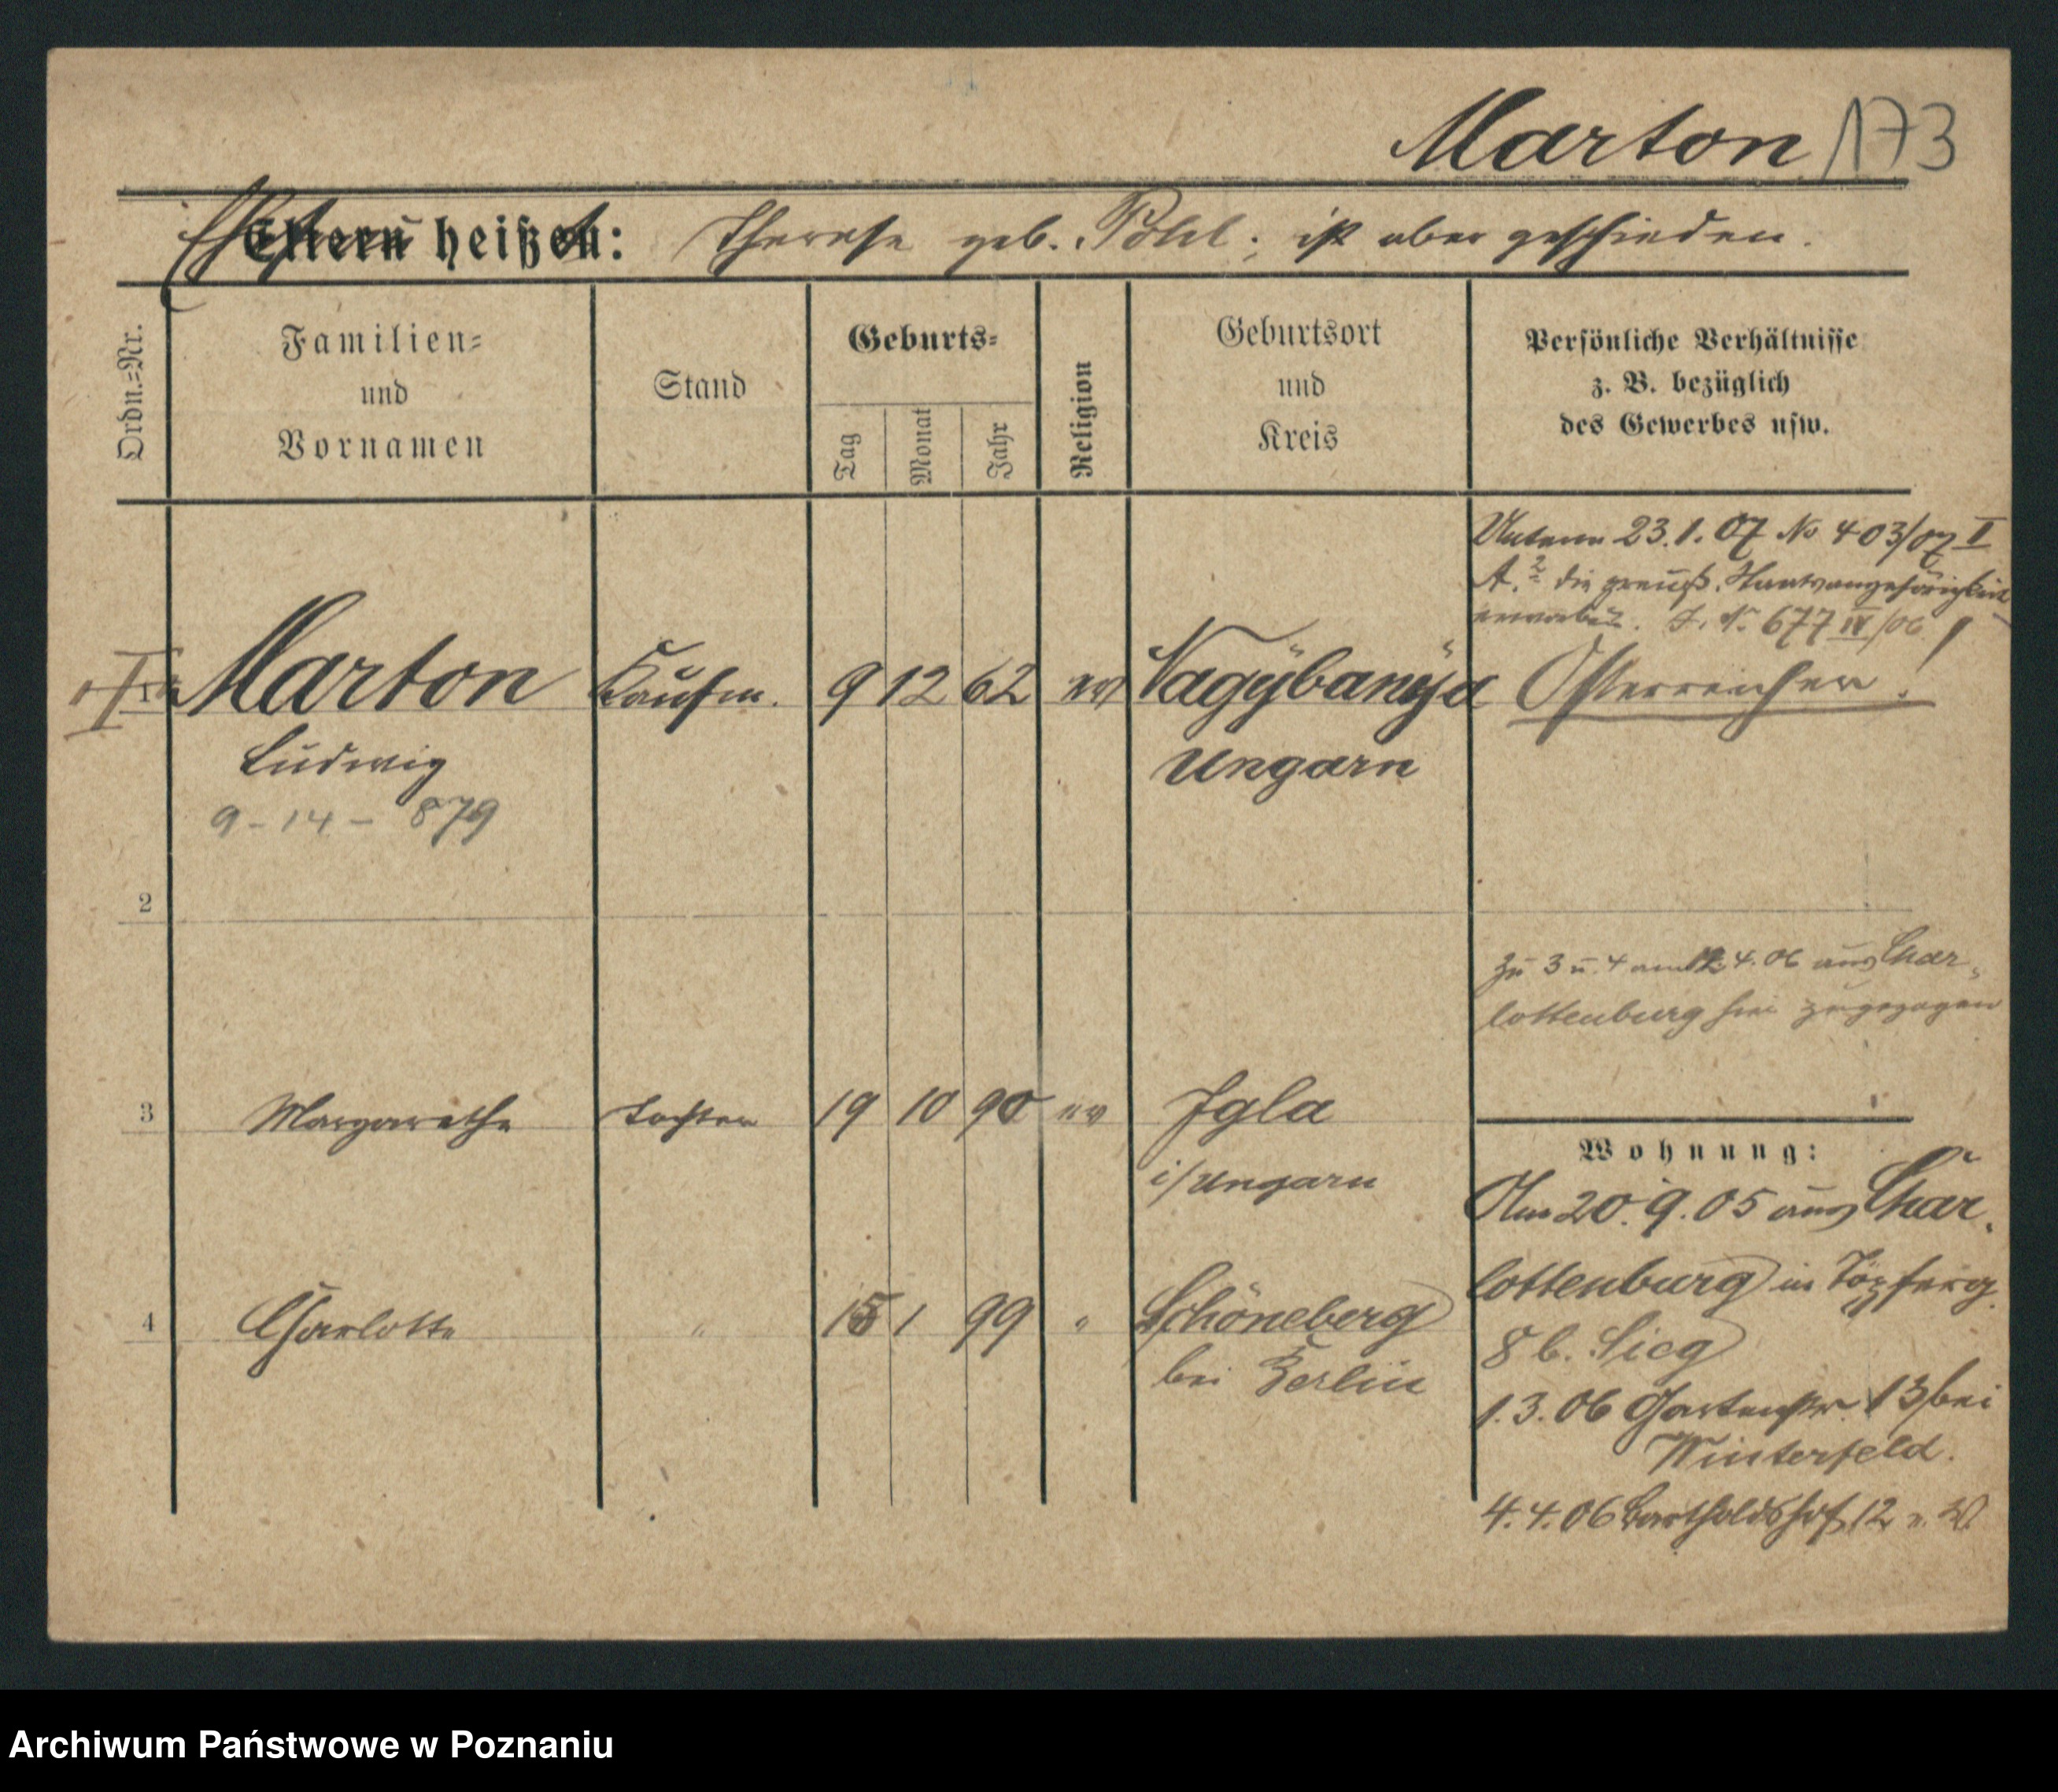 Marton 173
Ehefrau heißt: Therese geb. Pohl; ist aber geschieden.
Ordn.=Nr.
Familien=
und
Vornamen
Stand
Geburts=
Tag
Monat
Jahr
Religion
Geburtsort
und
Kreis
Persönliche Verhältnisse
z. B. bezüglich
des Gewerbes usw.
Unterm 23.1.07 No 403/07 I
A. 2 die preuß. Staatsangehörigkeit
erworben. J. N. 677 IV/06 !
1 Marton Kaufm. 9 12 62 ev Nagybanya Österreicher!
Ludwig Ungarn
9 - 14 - 879
2
Zu 3 u. 4 am 12.4.06 aus Char-
lottenburg hier zugezogen
3 Margarethe Tochter 19 10 90 ev Igla
i/Ungarn
Wohnung:
Am 20.9.05 aus Char-
lottenburg in Töpferg.
4 Charlotte " 15 1 99 " Schöneberg
bei Berlin
8 b. Sieg
1.3.06 Gartenstr. 13 bei
Winterfeld.
4.4.06 Bartholdshof 12
Archiwum Państwowe w Poznaniu